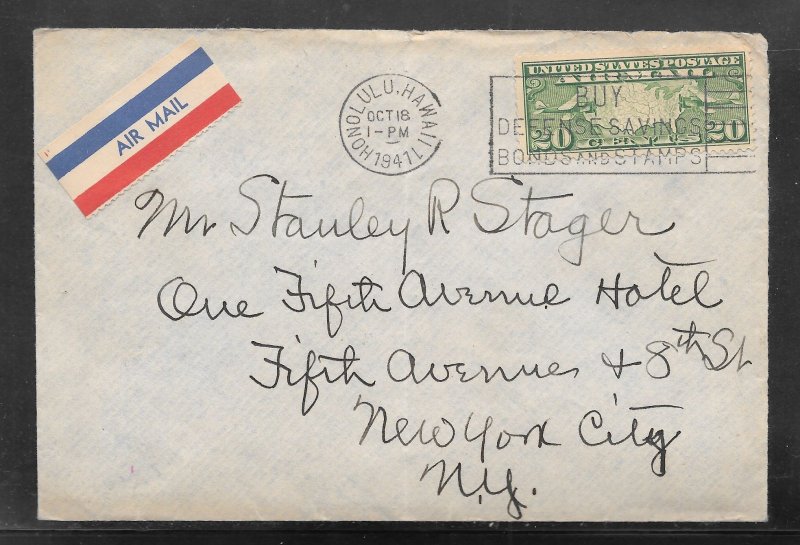 AIR MAIL
HONOLULU, HAWAII
OCT 18
1-PM
1941
UNITED STATES POSTAGE
AIR MAIL
BUY
DEFENSE SAVINGS
BONDS AND STAMPS
20 CENTS 20
Mr Stanley R Stager
One Fifth Avenue Hotel
Fifth Avenue & 8th St
New York City
N.Y.